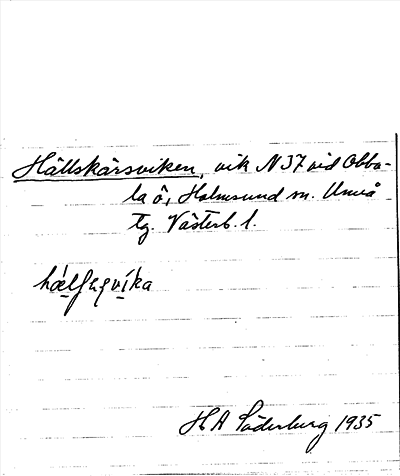 Hällskärsviken, vik N37 vid Obbo-
la ö, Holmsund sn. Umeå
tg. Västerb. l.
H A Söderburg 1935